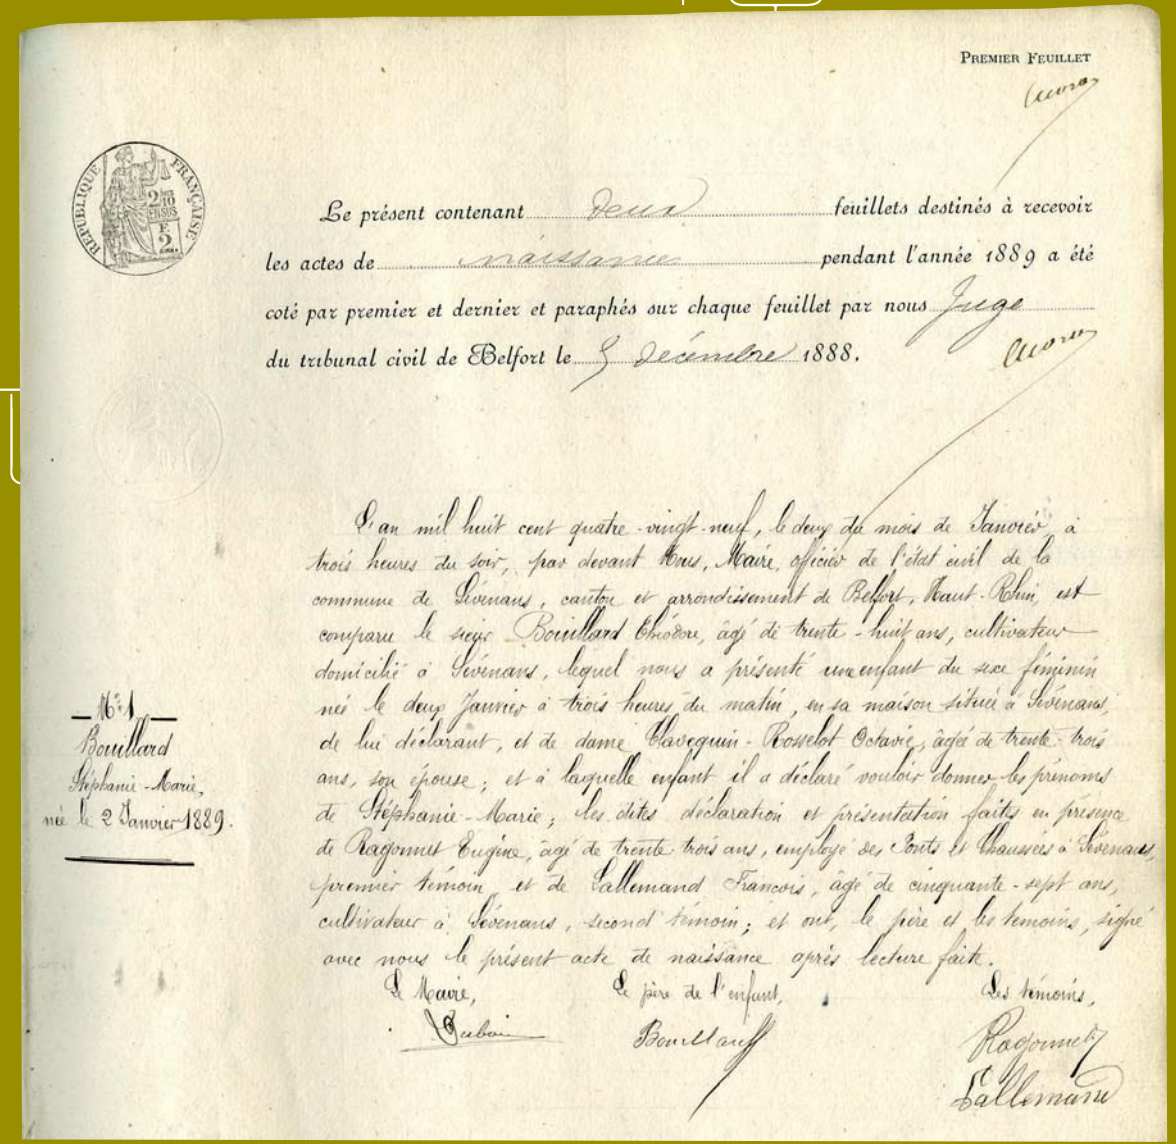 PREMIER FEUILLET
RÉPUBLIQUE FRANÇAISE
2/10 EN SUS
F
2.
Le présent contenant deux feuillets destinés à recevoir
les actes de naissance pendant l'année 1889 a été
coté par premier et dernier et paraphés sur chaque feuillet par nous Juge
du tribunal civil de Belfort le 5 décembre 1888.
L'an mil huit cent quatre-vingt-neuf, le deux du mois de Janvier, à
trois heures du soir, par devant Nous, Maire, officier de l'état civil de la
commune de Sévenans, canton et arrondissement de Belfort, Haut-Rhin, est
comparu le sieur Bouillard Théodore, âgé de trente-huit ans, cultivateur
domicilié à Sévenans, lequel nous a présenté un enfant du sexe féminin
né le deux Janvier à trois heures du matin, en sa maison située à Sévenans,
de lui déclarant, et de dame Clavequin-Rosselot Octavie, âgée de trente-trois
ans, son épouse; et à laquelle enfant il a déclaré vouloir donner les prénoms
de Stéphanie-Marie; les dites déclaration et présentation faites en présence
de Ragonnet Eugène, âgé de trente trois ans, employé des Ponts et Chaussées à Sévenans,
premier témoin, et de Lallemand Francois, âgé de cinquante-sept ans,
cultivateur à Sévenans, second témoin; et ont, le père et les témoins, signé
avec nous le présent acte de naissance après lecture faite.
N° 1
Bouillard
Stéphanie-Marie,
née le 2 Janvier 1889.
Le Maire, Le père de l'enfant, Les témoins,
Bouillard Ragonnet
Lallemand